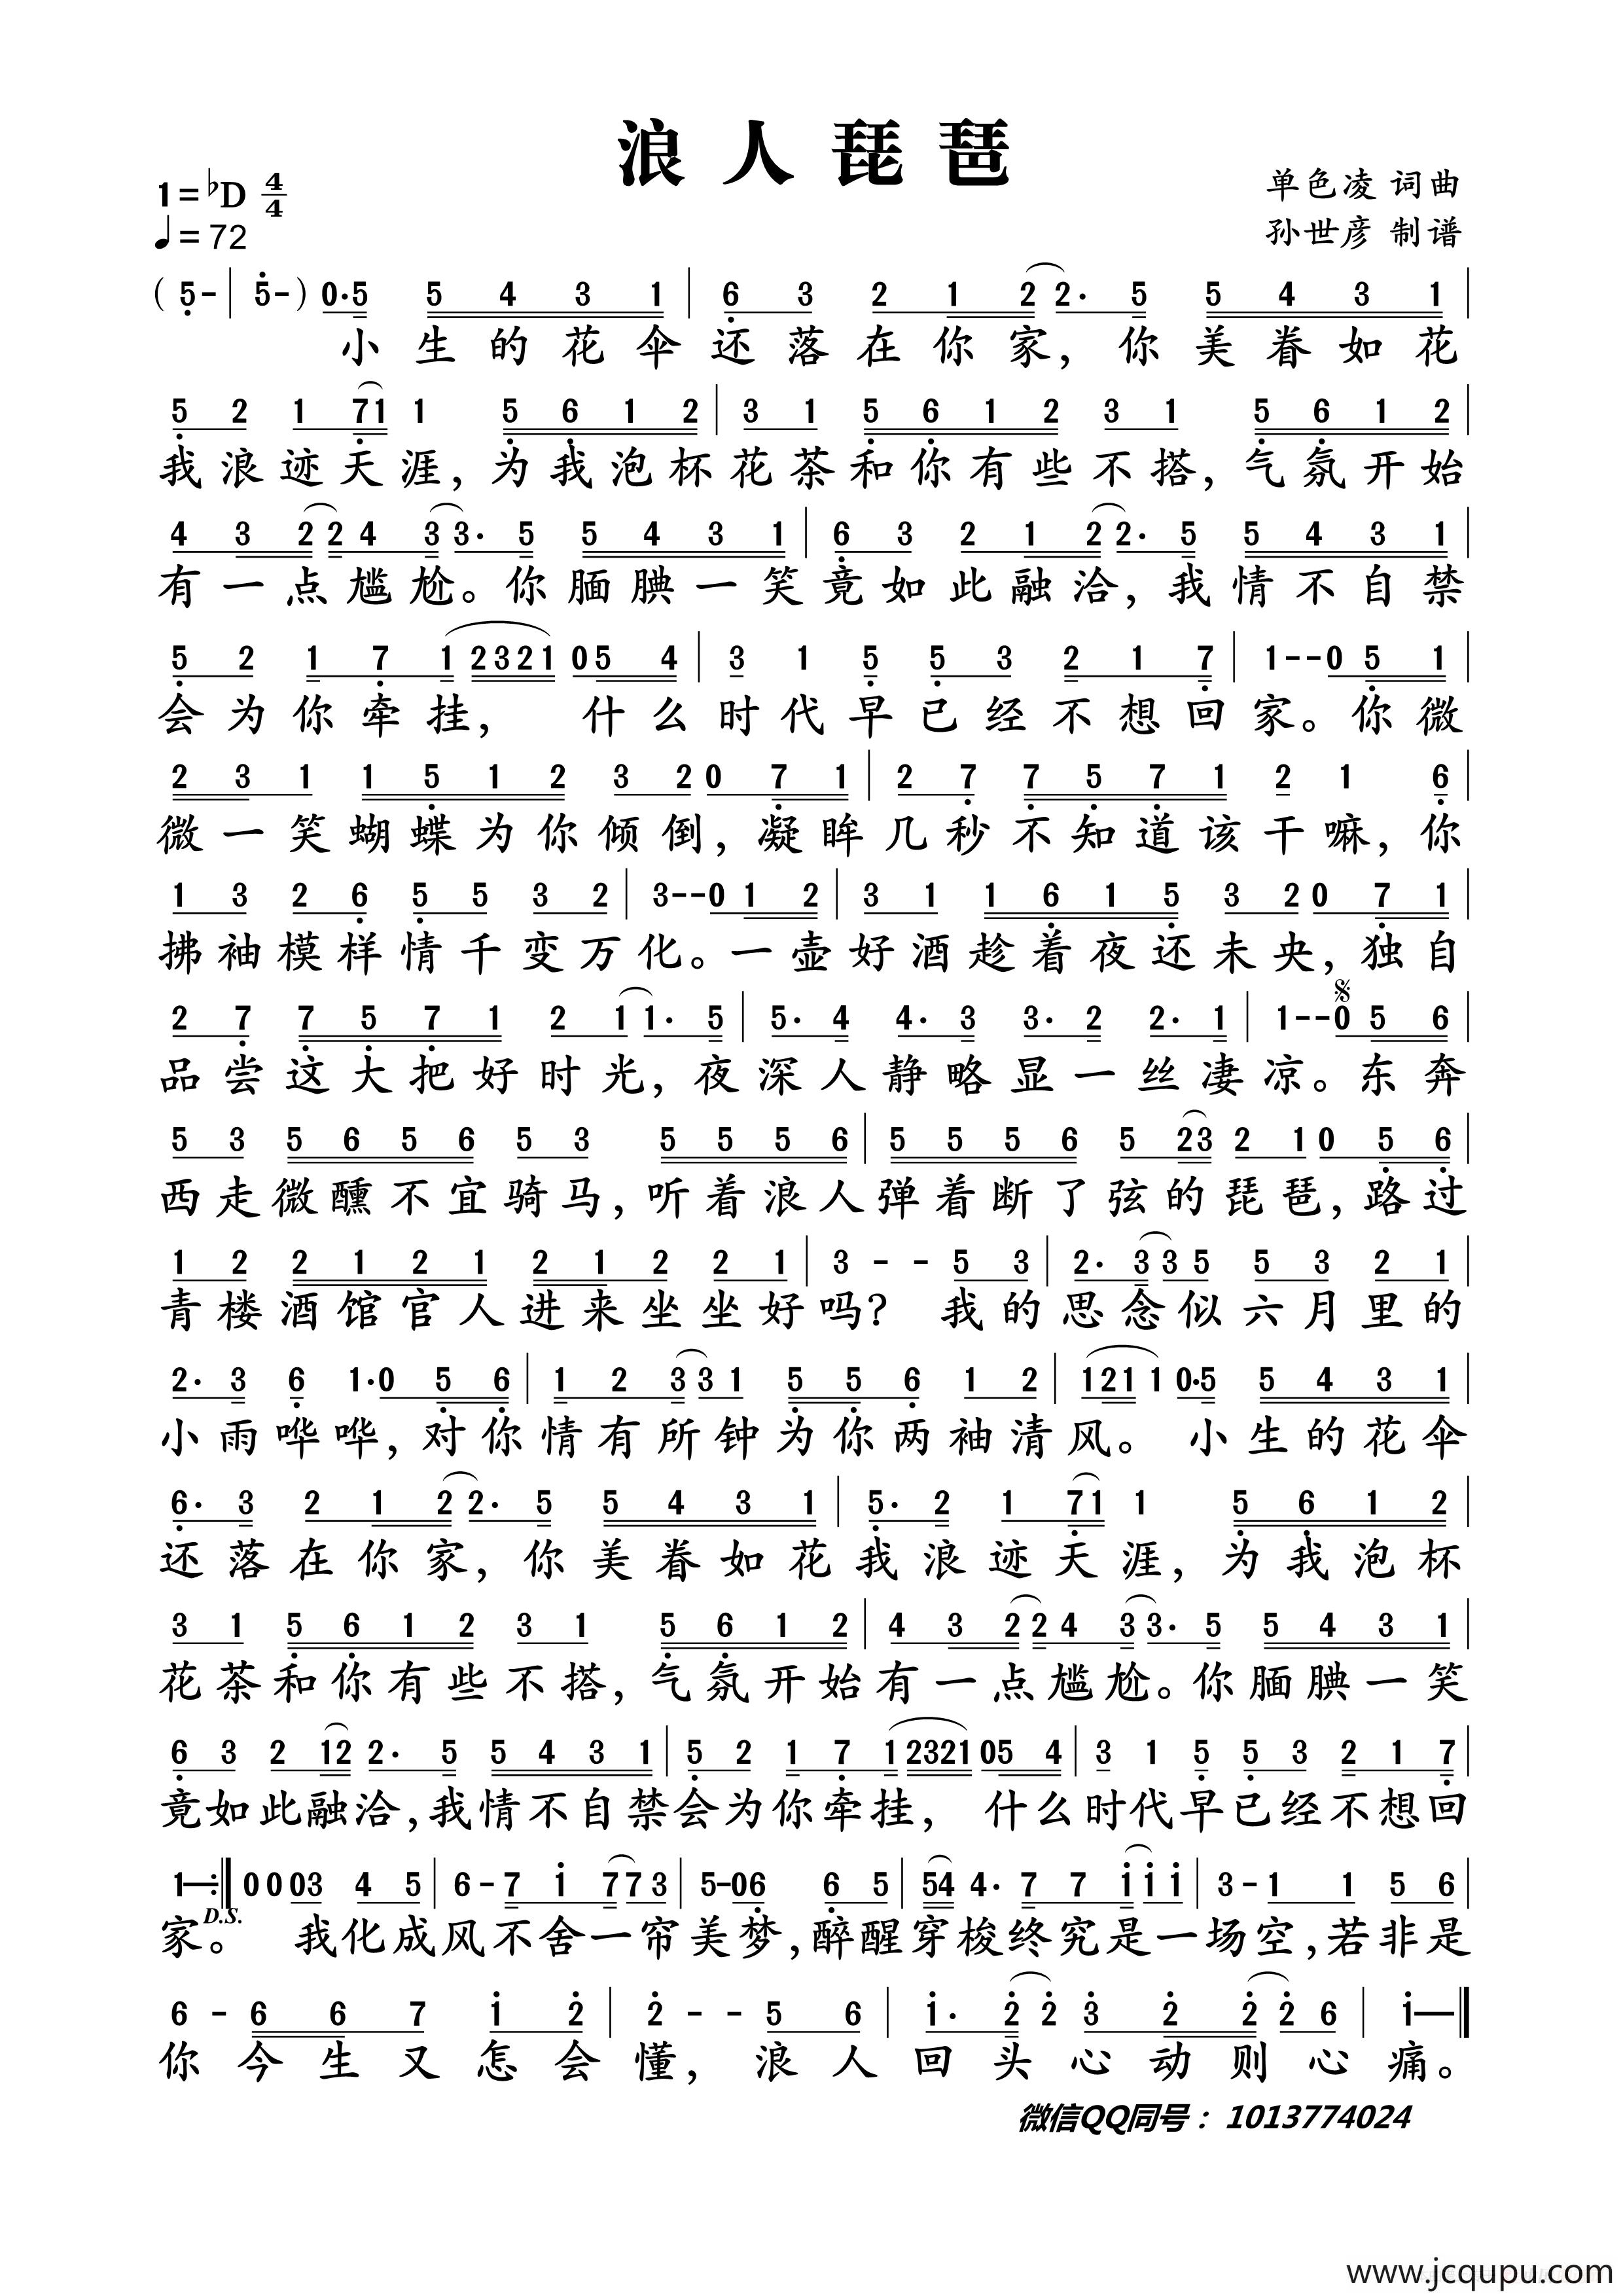 浪人琵琶
1=♭D 4/4
♩=72
单色凌 词曲
孙世彦 制谱
(5-|5-)0·5 5 4 3 1|6 3 2 1 2 2· 5 5 4 3 1|
小生的花伞还落在你家，你美眷如花
5 2 1 71 1 5 6 1 2|3 1 5 6 1 2 3 1 5 6 1 2|
我浪迹天涯，为我泡杯花茶和你有些不搭，气氛开始
4 3 2 2 4 3 3· 5 5 4 3 1|6 3 2 1 2 2· 5 5 4 3 1|
有一点尴尬。你腼腆一笑竟如此融洽，我情不自禁
5 2 1 7 1 2321 05 4|3 1 5 5 3 2 1 7|1--0 5 1|
会为你牵挂， 什么时代早已经不想回家。你微
2 3 1 1 5 1 2 3 2 0 7 1|2 7 7 5 7 1 2 1 6|
微一笑蝴蝶为你倾倒，凝眸几秒不知道该干嘛，你
1 3 2 6 5 5 3 2|3--0 1 2|3 1 1 6 1 5 3 2 0 7 1|
拂袖模样情千变万化。一壶好酒趁着夜还未央，独自
2 7 7 5 7 1 2 1 1· 5|5· 4 4· 3 3· 2 2· 1|1--0 5 6|
品尝这大把好时光，夜深人静略显一丝凄凉。东奔
5 3 5 6 5 6 5 3 5 5 5 6|5 5 5 6 5 23 2 1 0 5 6|
西走微醺不宜骑马，听着浪人弹着断了弦的琵琶，路过
1 2 2 1 2 1 2 1 2 2 1|3 - - 5 3|2· 3 3 5 5 3 2 1|
青楼酒馆官人进来坐坐好吗？ 我的思念似六月里的
2· 3 6 1·0 5 6|1 2 3 3 1 5 5 6 1 2|121 1 0·5 5 4 3 1|
小雨哗哗，对你情有所钟为你两袖清风。 小生的花伞
6· 3 2 1 2 2· 5 5 4 3 1|5· 2 1 71 1 5 6 1 2|
还落在你家，你美眷如花我浪迹天涯，为我泡杯
3 1 5 6 1 2 3 1 5 6 1 2|4 3 2 2 4 3 3· 5 5 4 3 1|
花茶和你有些不搭，气氛开始有一点尴尬。你腼腆一笑
6 3 2 12 2· 5 5 4 3 1|5 2 1 7 1 2321 05 4|3 1 5 5 3 2 1 7|
竟如此融洽，我情不自禁会为你牵挂， 什么时代早已经不想回
1—:‖0 0 03 4 5|6-7 1 7 7 3|5-06 6 5|54 4· 7 7 1 1 1|3-1 1 5 6|
家。D.S. 我化成风不舍一帘美梦，醉醒穿梭终究是一场空，若非是
6 - 6 6 7 1 2|2 - - 5 6|1· 2 2 3 2 2 2 6|1—‖
你今生又怎会懂，浪人回头心动则心痛。
微信QQ同号：1013774024
www.jcqupu.com